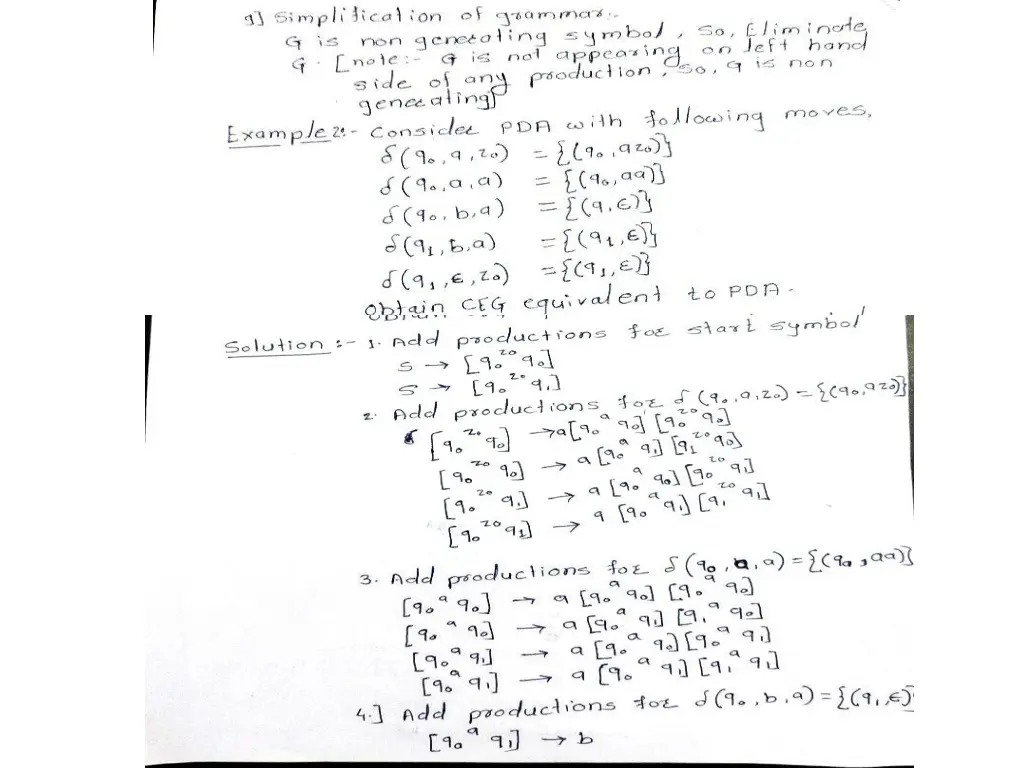 9] Simplification of grammar:-
G is non generating symbol, so, Eliminate
G. [note:- G is not appearing on left hand
side of any production, so, G is non
generating]
Example 2:- Consider PDA with following moves,
δ(q₀, a, z₀) = {(q₀, az₀)}
δ(q₀, a, a) = {(q₀, aa)}
δ(q₀, b, a) = {(q, ε)}
δ(q₁, b, a) = {(q₁, ε)}
δ(q₁, ε, z₀) = {(q₁, ε)}
Obtain CFG equivalent to PDA.
Solution :- 1. Add productions for start symbol
S → [q₀ z₀ q₀]
S → [q₀ z₀ q₁]
2. Add productions for δ(q₀, a, z₀) = {(q₀, az₀)}
[q₀ z₀ q₀] → a[q₀ a q₀] [q₀ z₀ q₀]
[q₀ z₀ q₀] → a [q₀ a q₁] [q₁ z₀ q₀]
[q₀ z₀ q₁] → a [q₀ a q₀] [q₀ z₀ q₁]
[q₀ z₀ q₁] → a [q₀ a q₁] [q₁ z₀ q₁]
3. Add productions for δ(q₀, a, a) = {(q₀, aa)}
[q₀ a q₀] → a [q₀ a q₀] [q₀ a q₀]
[q₀ a q₀] → a [q₀ a q₁] [q₁ a q₀]
[q₀ a q₁] → a [q₀ a q₀] [q₀ a q₁]
[q₀ a q₁] → a [q₀ a q₁] [q₁ a q₁]
4.] Add productions for δ(q₀, b, a) = {(q₁, ε)}
[q₀ a q₁] → b